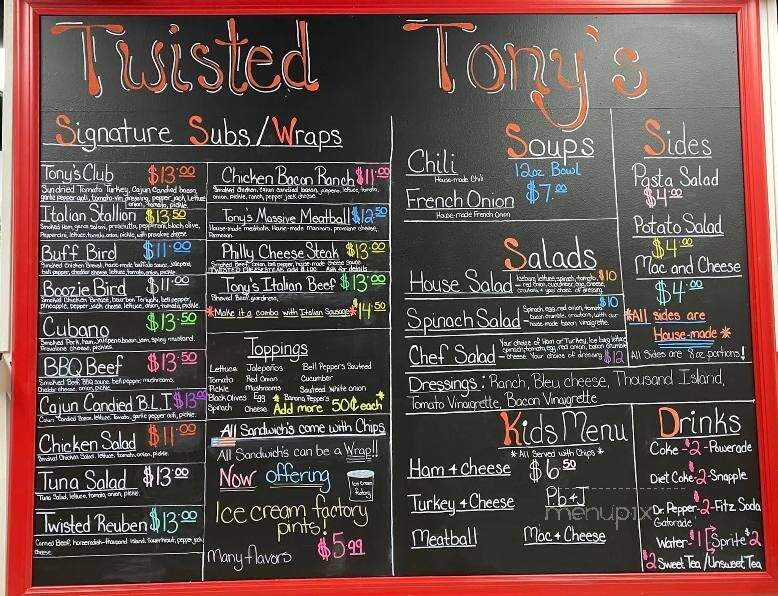 Twisted Tony's
Signature Subs/Wraps
Tony's Club $13.00
Sundried Tomato Turkey, Cajun Candied bacon,
garlic pepper aioli, tomato-vin dressing, pepper jack, lettuce
onion, tomato, pickle.
Italian Stallion $13.50
Smoked Ham, genoa salami, prosciutto, pepperoni, black olive,
Pepperoncini, lettuce, tomato, onion, pickle, with provolone cheese
Buff Bird $11.00
Smoked Chicken Breast, house-made buffalo sauce, jalepeno,
bell pepper, cheddar cheese, lettuce, tomato, onion, pickle.
Boozie Bird $11.00
Smoked Chicken Breast, bourbon Teriyaki, bell pepper,
pineapple, pepper jack cheese, lettuce, onion, tomato, pickle.
Cubano $13.50
Smoked Pork, ham, jalapeno bacon jam, spicy mustard,
Provolone cheese, pickles.
BBQ Beef $13.50
Smoked Beef, BBQ sauce, bell pepper, mushrooms,
cheddar cheese, onion, pickle.
Cajun Candied BLT $13.00
Cajun Candied Bacon, lettuce, Tomato, garlic pepper aoli, pickle.
Chicken Salad $11.00
Smoked Chicken Salad, lettuce, tomato, onion, pickle.
Tuna Salad $13.00
Tuna Salad, lettuce, tomato, onion, pickle.
Twisted Reuben $13.00
Corned Beef, horseradish-thousand island, Sauerkraut, pepper jack
cheese
Chicken Bacon Ranch $11.00
Smoked chicken, cajun candied bacon, jalapeno, lettuce, tomato,
onion, pickle, ranch, pepper jack cheese.
Tony's Massive Meatball $12.50
House-made meatballs, House-made marinara, provolone cheese,
Parmesan
Philly Cheese Steak $13.00
Smoked Beef, onion, bell pepper, house-made cheese sauce
Twisted Cheesesteaks add $1.00 Ask for details
Tony's Italian Beef $13.00
Shaved Beef, giardiniera,
*Make it a combo with Italian Sausage* $14.50
Toppings
Lettuce Jalepeños Bell Peppers Sauteed
Tomato Red Onion Cucumber
Pickle Mushrooms Sauteed White onion
Black Olives Egg * Banana Peppers
Spinach Cheese Add more 50¢ each*
All Sandwich's come with Chips
All Sandwich's can be a Wrap!!
Now offering
Ice Cream
factory
Ice cream factory
pints!
Many flavors $5.99
Soups
12oz Bowl
$7.00
Chili
House-made Chili
French Onion
House-made French Onion
Salads
House Salad Iceburg lettuce, spinach, tomato, $10
red onion, cucumber, egg, cheese,
croutons & your choice of dressing
Spinach Salad Spinach, egg, red onion, tomato, $10
bacon crumble, croutons, with our
house made bacon vinaigrette.
Chef Salad - Your choice of Ham or Turkey, Ice berg lettuce
spinach, tomato, egg, red onion, bacon crumble
cheese Your choice of dressing $12
Dressings: Ranch, Bleu cheese, Thousand Island,
Tomato Vinaigrette, Bacon Vinaigrette
Kids Menu
*All Served with Chips*
$6.50
Ham + Cheese
Turkey + Cheese Pb + J
Meatball Mac + Cheese
menupix
Sides
Pasta Salad
$4.00
Potato Salad
$4.00
Mac and Cheese
$4.00
*All sides are
House-made*
All Sides are 8 oz. portions!
Drinks
Coke -$2- Powerade
Diet Coke-$2-Snapple
Dr. Pepper-$2-Fitz Soda
Gatorade
Water-$1 Sprite $2
$2 Sweet Tea/Unsweet Tea